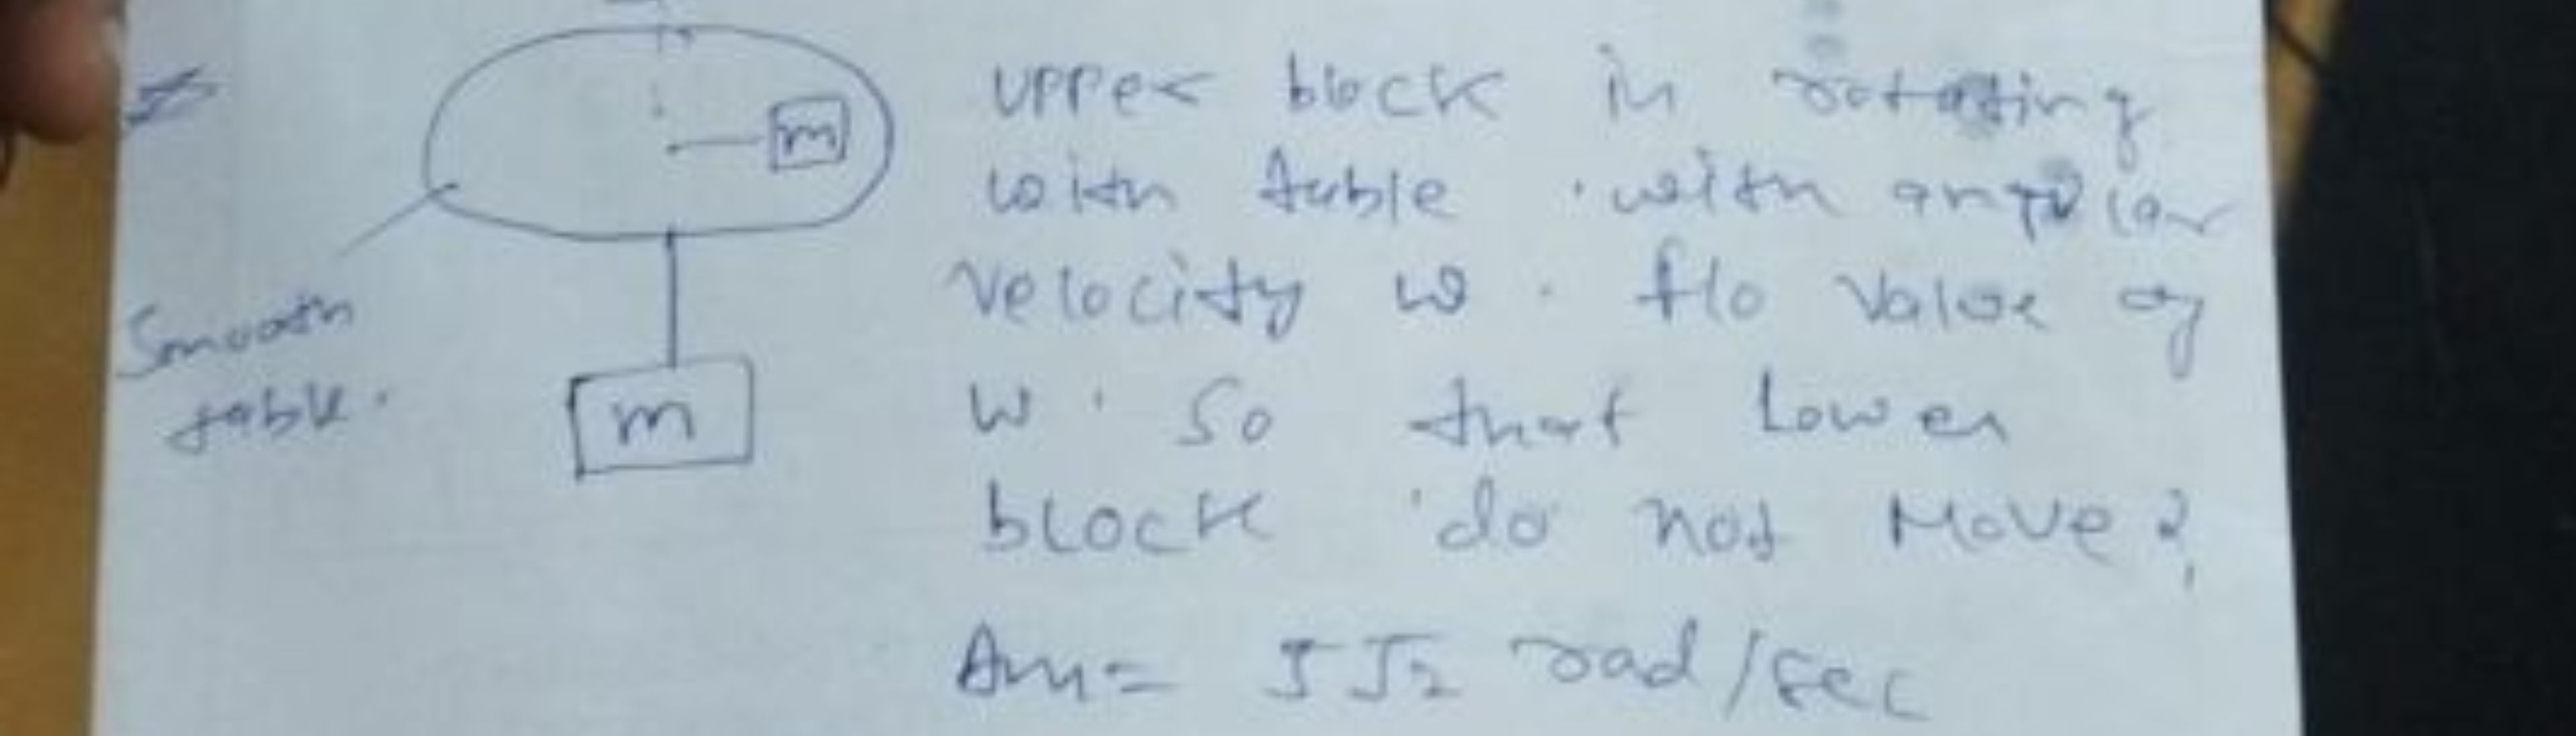 m
Smooth
table.
m
upper block in rotating
with table with angular
velocity ω. f10 value of
W. So that Lower
block do not Move?
Ans= 5√2 rad/sec